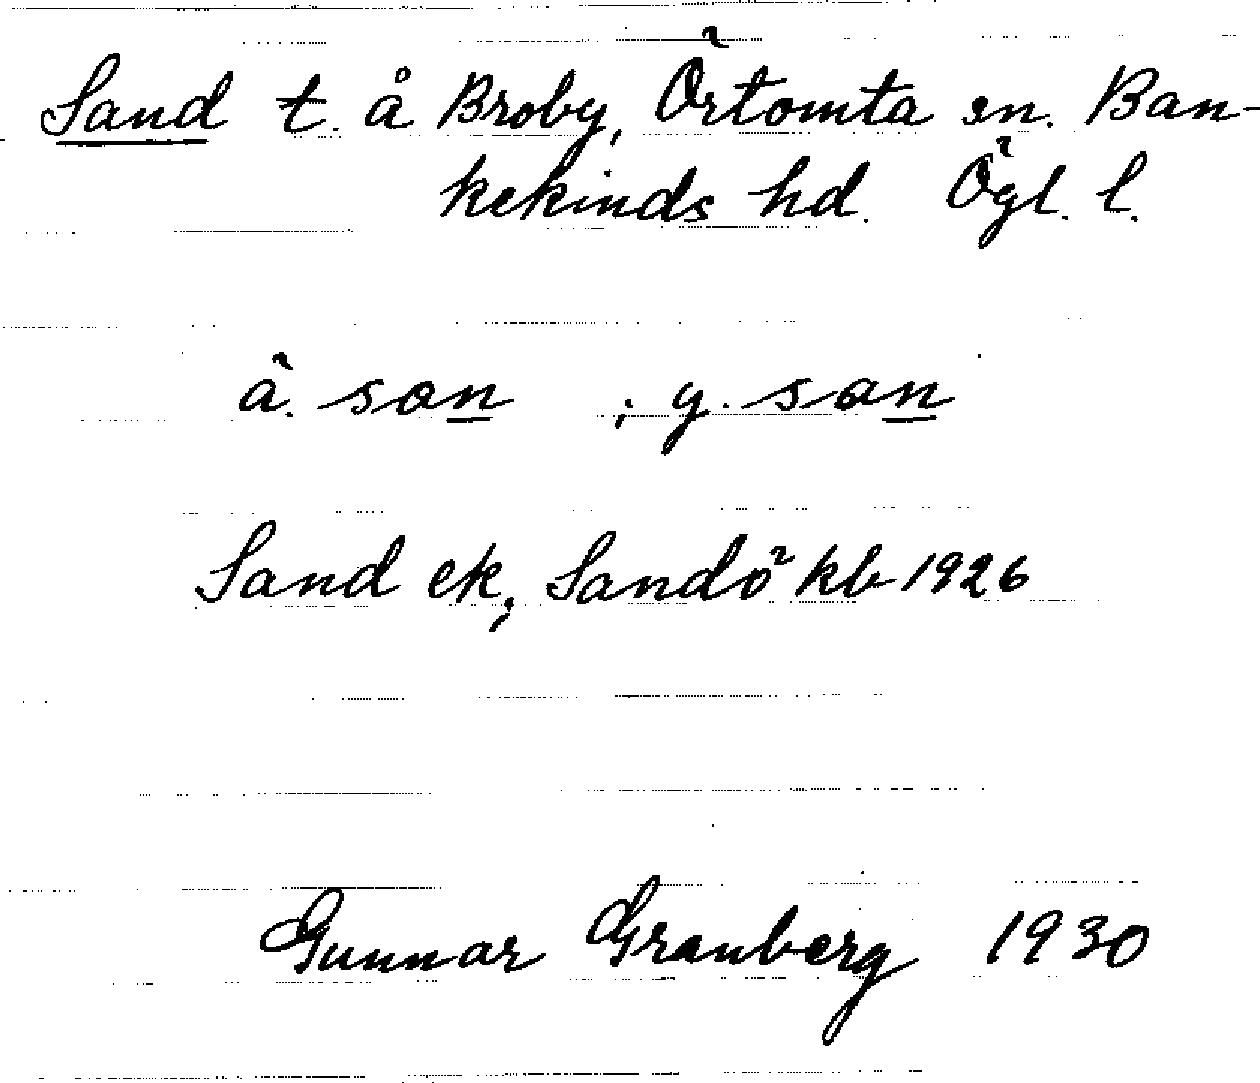 Sand t. å Broby, Örtomta sn. Ban-
kekinds hd. Ögl. l.
ä. san ; y. san
Sand ek, Sandö kb 1926
Gunnar Granberg 1930